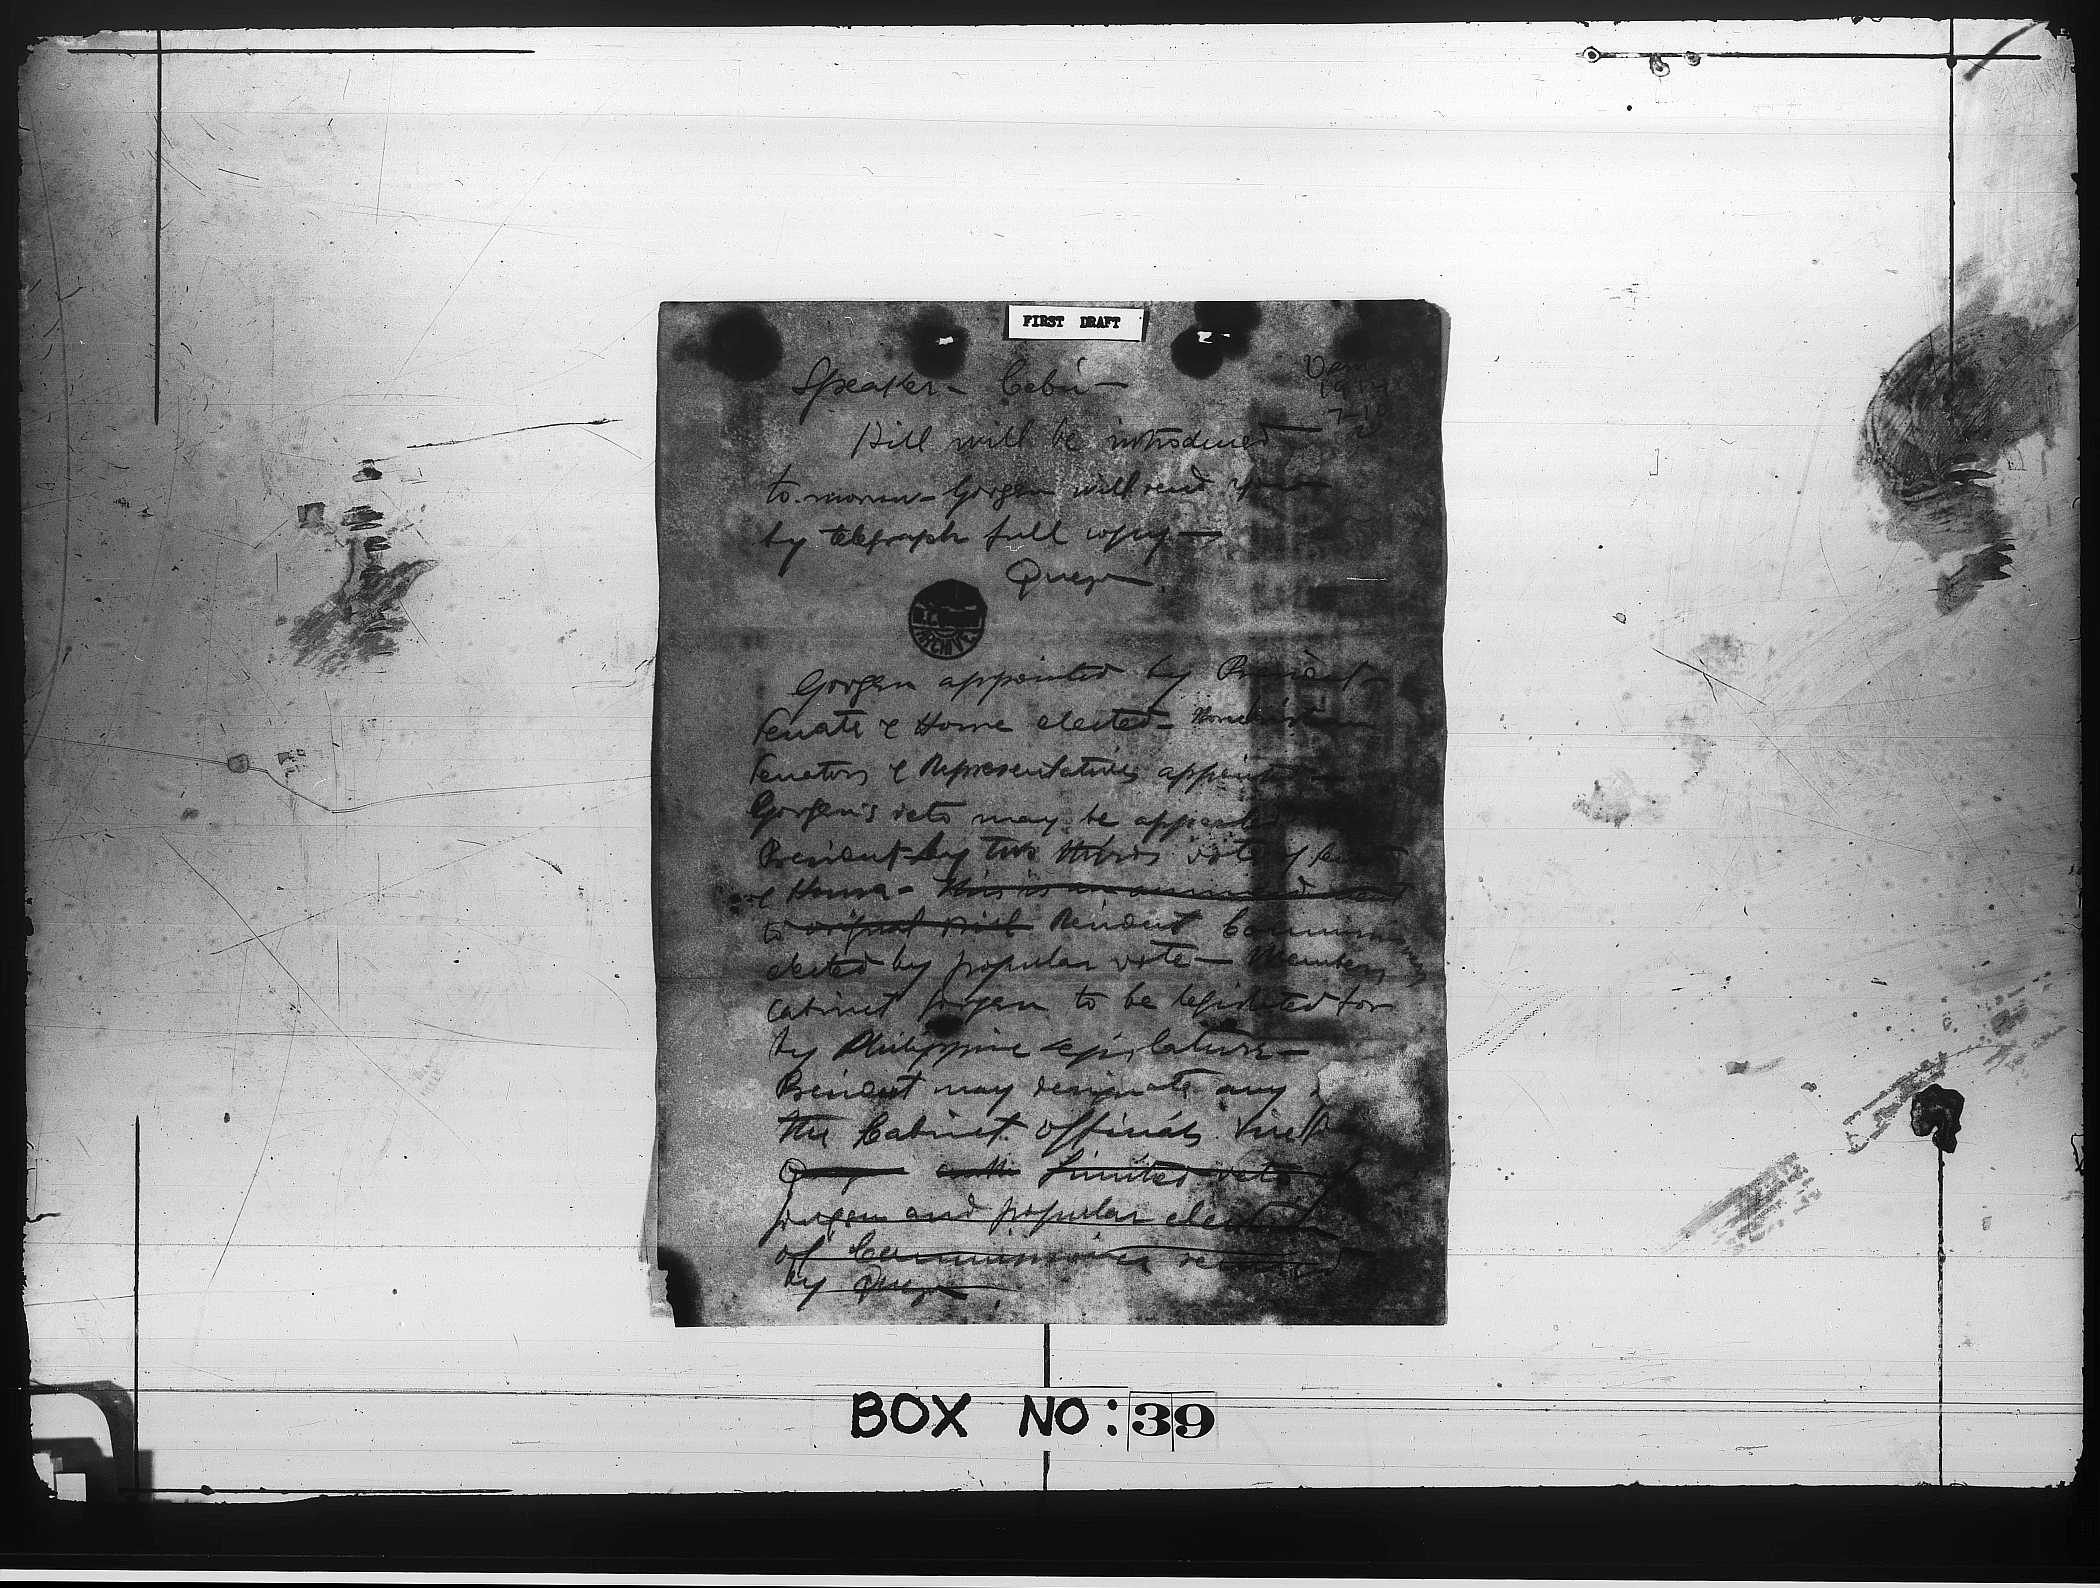 FIRST DRAFT
Speaker - Cebú -
Bill will be introduced -
to-morrow - Govgen will send you
by telegraph full copy -
Quezon
ARCHIVES
Govgen appointed by President -
Senate & House elected - Nonchristian
Senators & Representatives appointed -
Govgen's veto may be appealed
President by two thirds vote of Senate
& House - This is an ammendment
to original bill Resident Commissioners
elected by popular vote - Members
cabinet govgen to be legislated for
by Philippine Legislature -
President may designate any
the Cabinet officials
Quezon Limited veto of
govgen and popular election
of Commissioner
by Quezon
BOX NO: 39